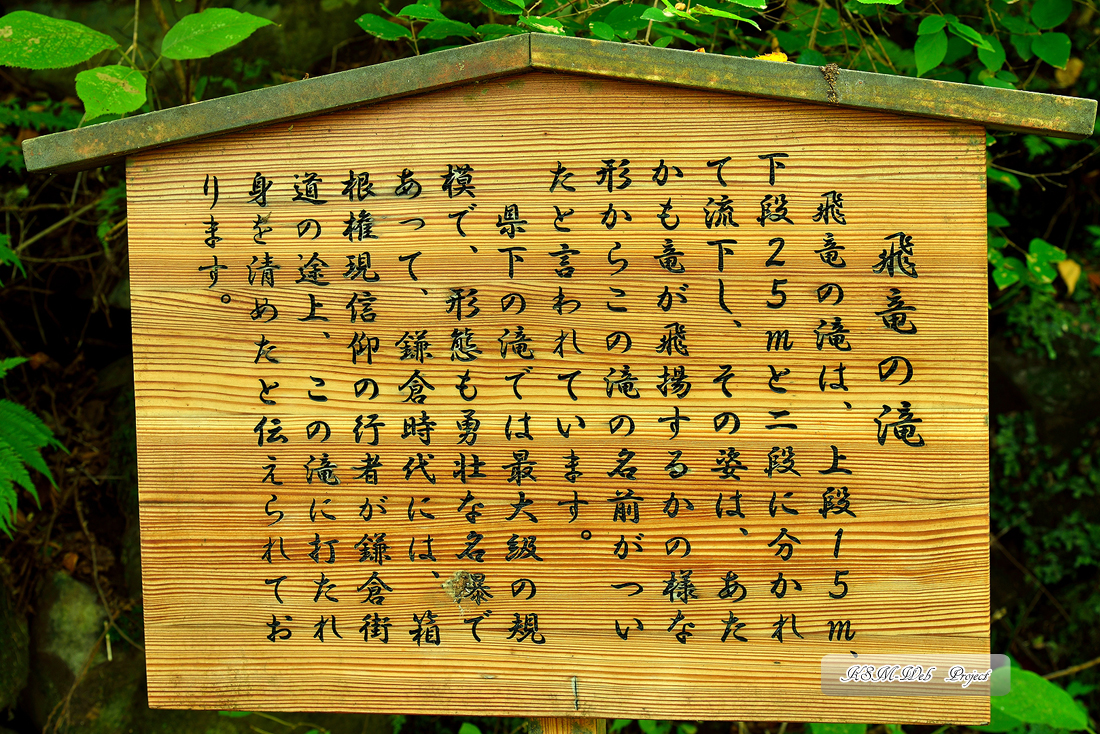 飛竜の滝
飛竜の滝は、上段15m、
下段25mと二段に分かれ
て流下し、その姿は、あた
かも竜が飛揚するかの様な
形からこの滝の名前がつい
たと言われています。
県下の滝では最大級の規
模で、形態も勇壮な名爆で
あって、鎌倉時代には、箱
根権現信仰の行者が鎌倉街
道の途上、この滝に打たれ
身を清めたと伝えられてお
ります。
KSM-Web Project